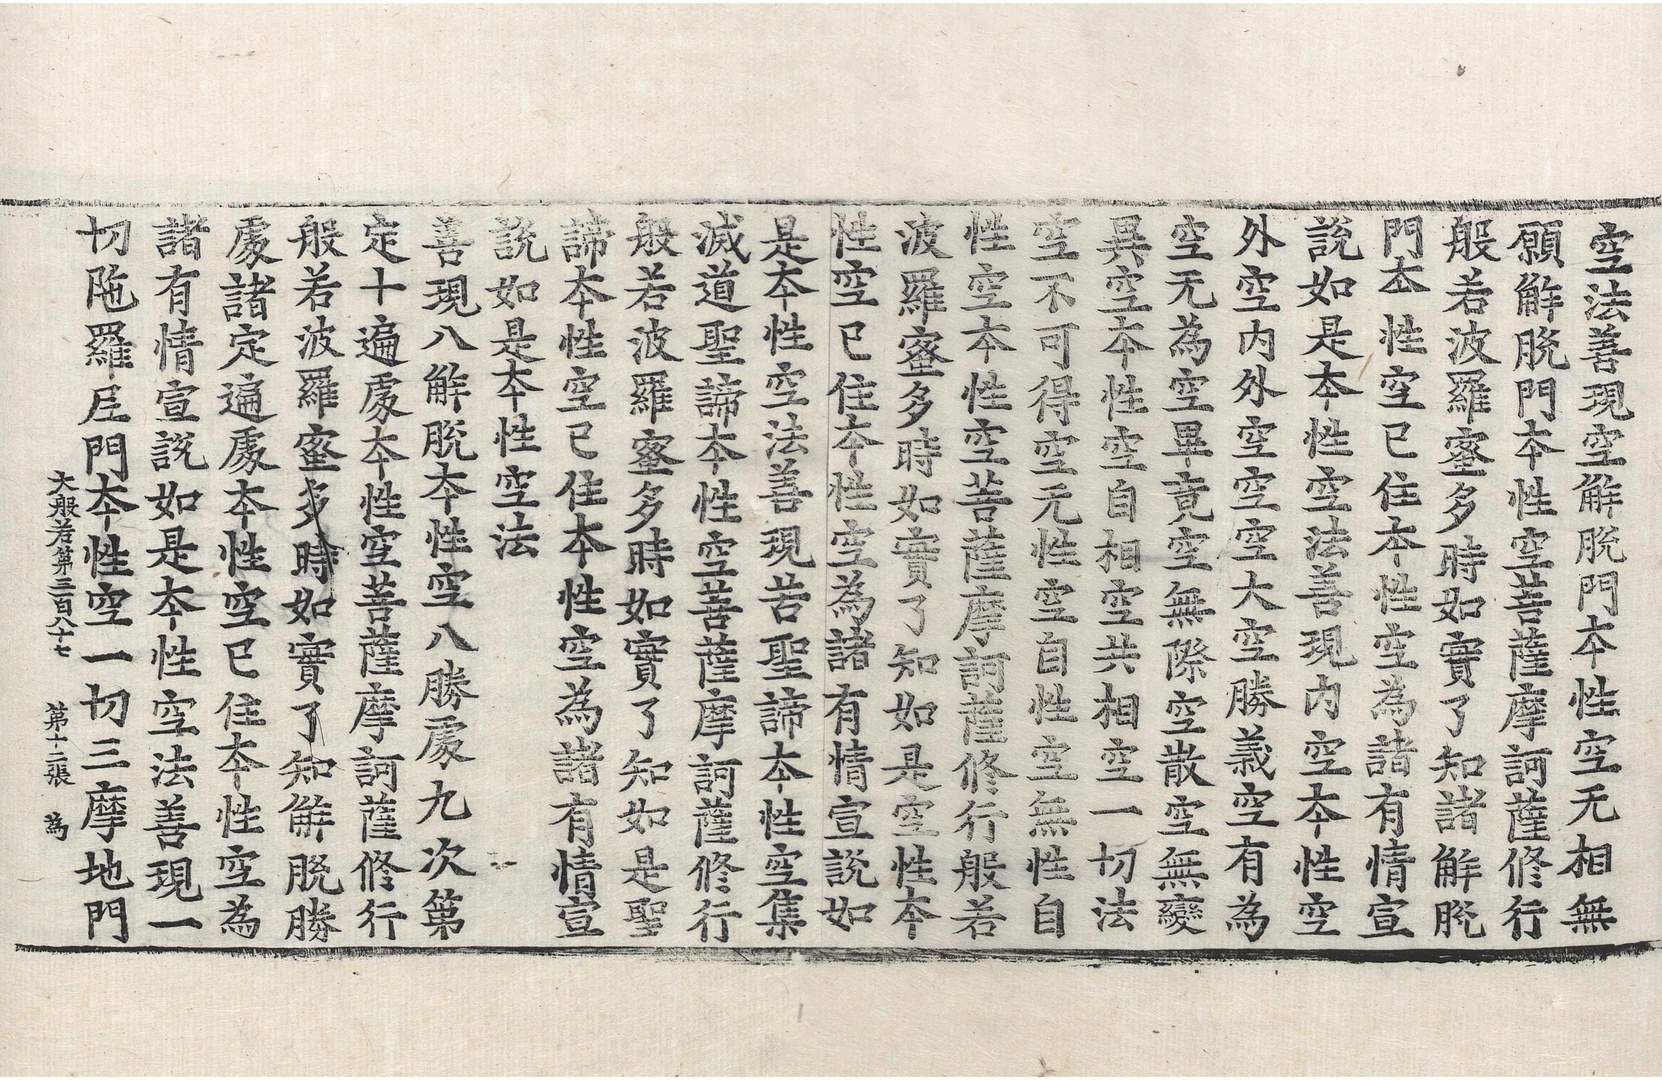 空法善現空解脫門本性空无相無
願解脫門本性空菩薩摩訶薩修行
般若波羅蜜多時如實了知諸解脫
門本性空已住本性空為諸有情宣
說如是本性空法善現内空本性空
外空内外空空空大空勝義空有為
空无為空畢竟空無際空散空無變
異空本性空自相空共相空一切法
空不可得空无性空自性空無性自
性空本性空菩薩摩訶薩修行般若
波羅蜜多時如實了知如是空性本
性空已住本性空為諸有情宣說如
是本性空法善現苦聖諦本性空集
滅道聖諦本性空菩薩摩訶薩修行
般若波羅蜜多時如實了知如是聖
諦本性空已住本性空為諸有情宣
說如是本性空法
善現八解脫本性空八勝處九次第
定十遍處本性空菩薩摩訶薩修行
般若波羅蜜多時如實了知解脫勝
處諸定遍處本性空已住本性空為
諸有情宣說如是本性空法善現一
切陁羅尼門本性空一切三摩地門
大般若第三百八十七 第十二張 為